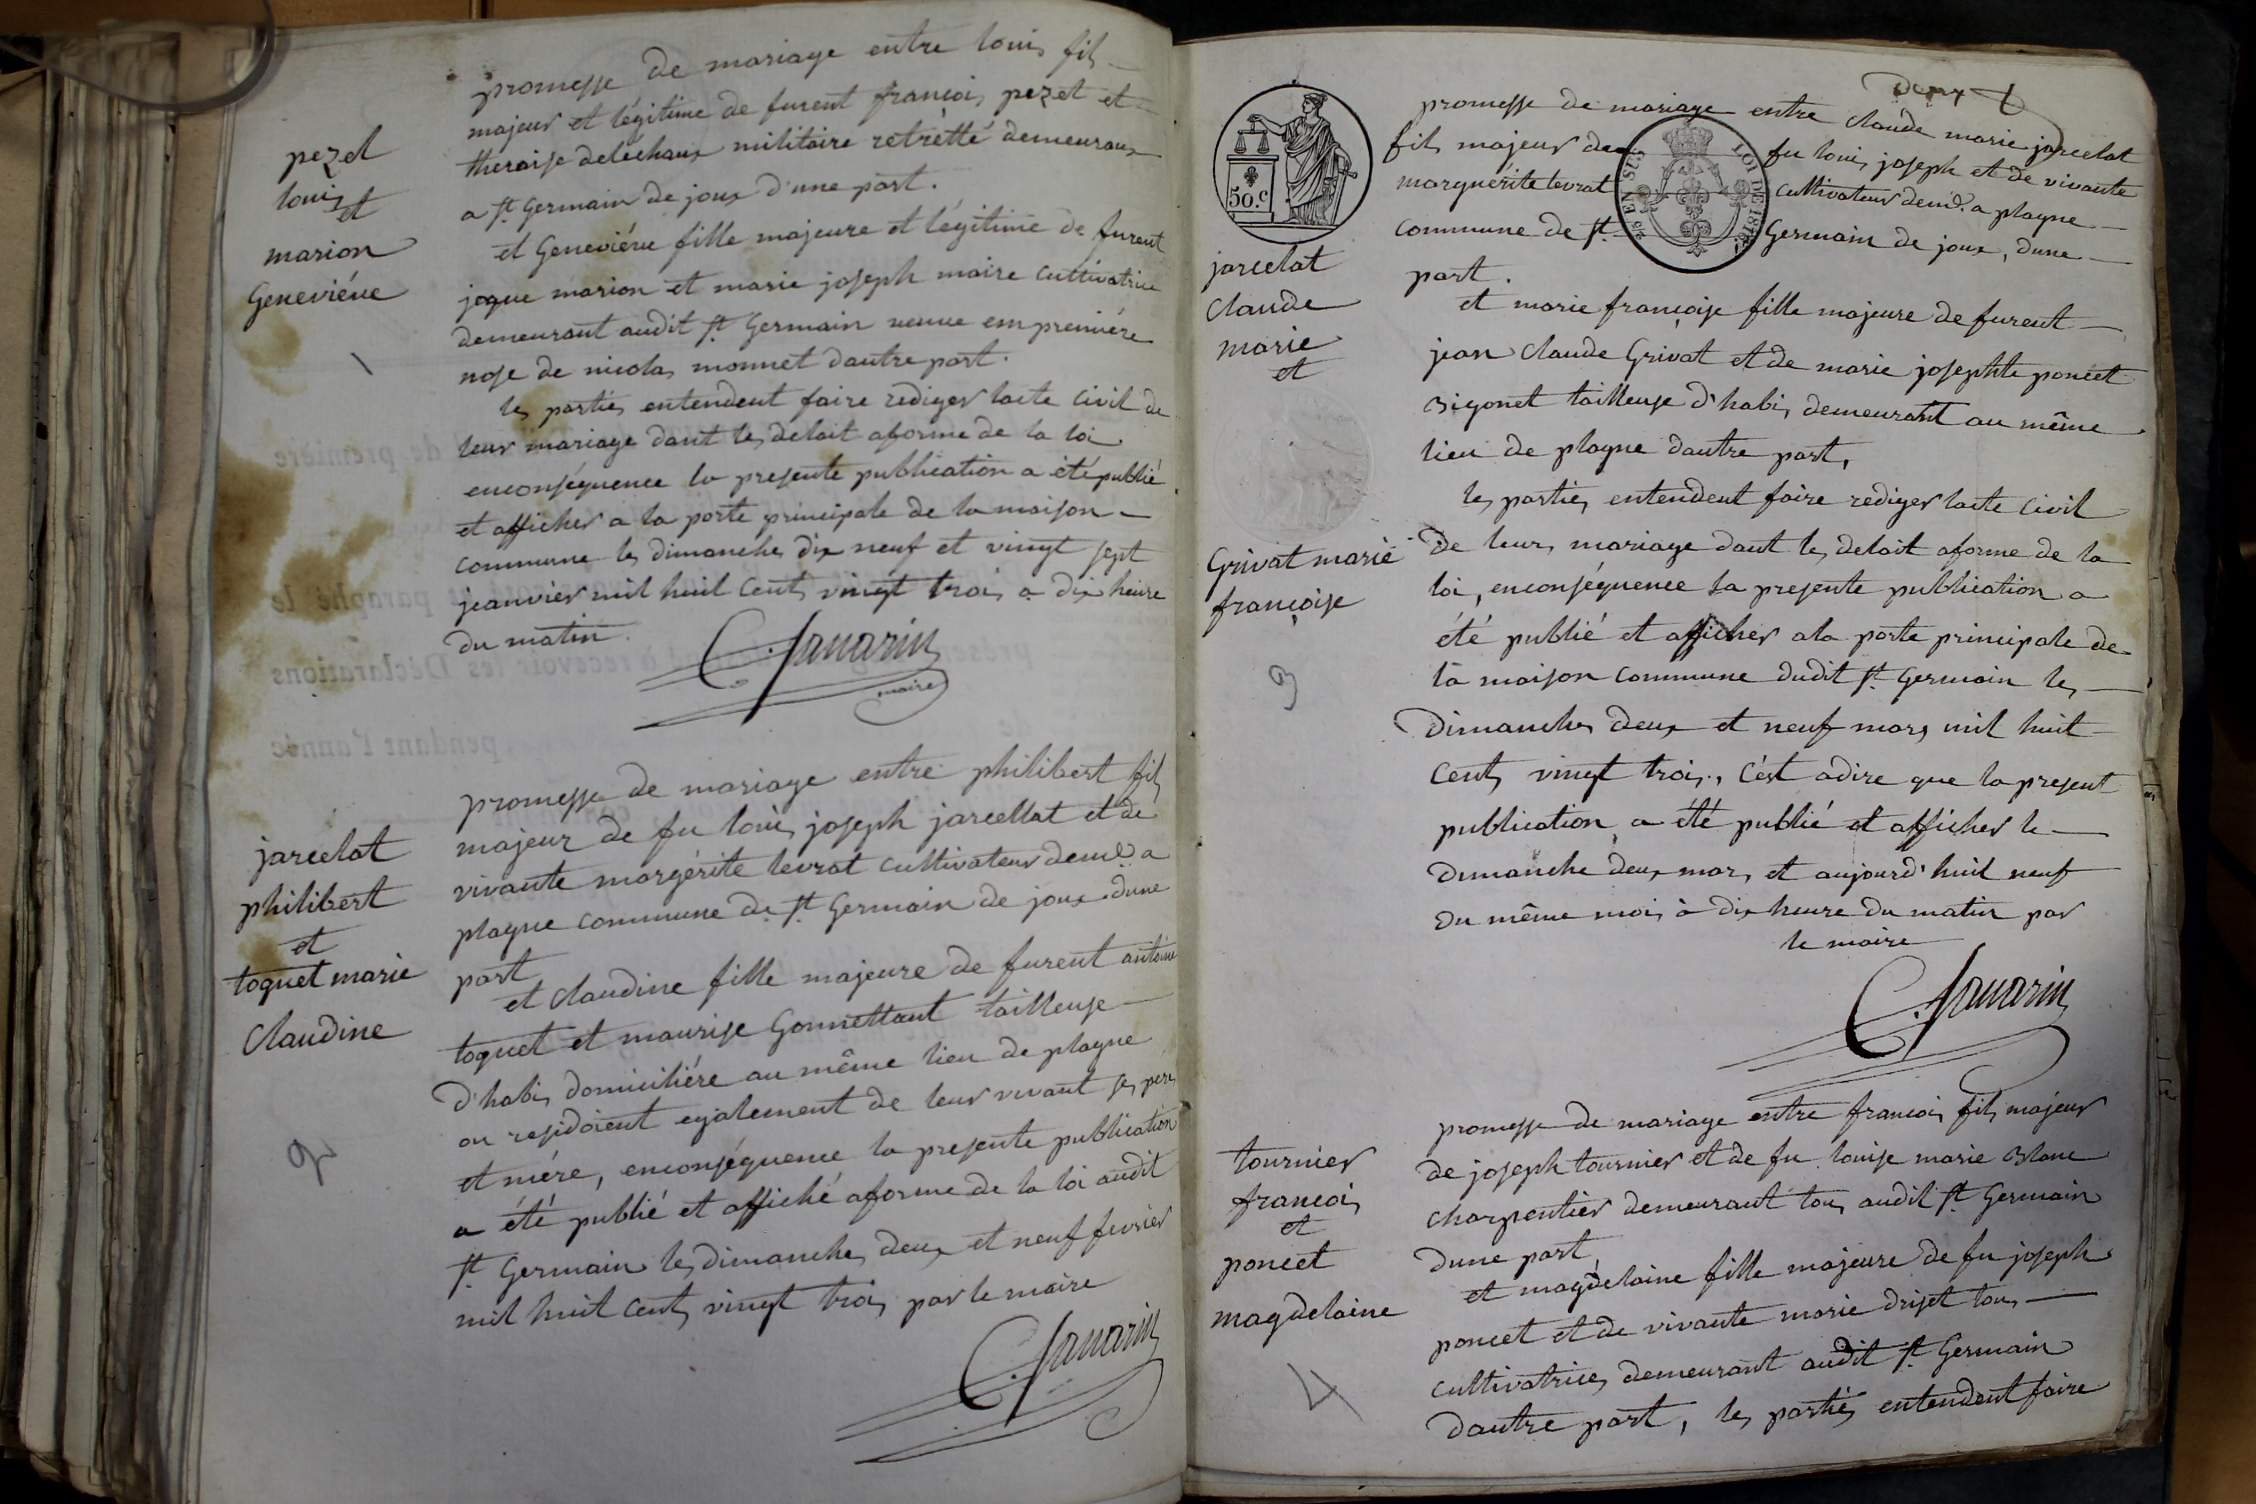 pezet
louis
et
marion
Geneviéve
1
promesse de mariage entre louis fils
majeur et légitime de furent francois pezet et
théraise delechaux militaire retrètté demeurant
a st Germain de joux d'une part.
et Geneviéve fille majeure et légitime de furent
joque marion et marie joseph maire cultivatrice
demeurant audit st Germain veuve em premiére
nose de nicolas monnet dautre part.
les parties entendent faire rediger lacte civil de
leur mariage dant les delait aforme de la loi
enconséquence la presente publication a été publié
et afficher a la porte principale de la maison
commune les dimanches dix neuf et vingt sept
jeanvier mil huit cents vingt trois a dix heure
du matin.
C. Savarin
maire
jarcelat
philibert
et
toquet marie
Claudine
2
promesse de mariage entre philibert fils
majeur de fu louis joseph jarcellat et de
vivante margérite levrat cultivateur demt a
plagne commune de st Germain de joux dune
part
et Claudine fille majeure de furent antoine
toquet et maurise Gonnettant tailleuse
d'habis domiciliére au même lieu de plagne
ou residoient egalement de leur vivant ses pere
et mére, enconséquence la presente publication
a été publié et affiché aforme de la loi audit
st Germain les dimanche deux et neuf fevrier
mil huit cents vingt trois par le maire
C. Savarin
50.c
EN SUS
LOI DE 1816
jarcelat
Claude
marie
et
Grivat marie
françoise
3
promesse de mariage entre claude marie jarcelat
fils majeur de fu louis joseph et de vivante
marguérite levrat cultivateur demt a plagne
commune de st Germain de joux, dune
part.
et marie françoise fille majeure de furent
jean Claude Grivat et de marie josephte poncet
Bigonet tailleuse d'habis demeurant au même
lieu de plagne dautre part,
les parties entendent faire rediger lacte civil
de leurs mariage dant les delait aforme de la
loi, enconséquence la presente publication a
été publié et afficher a la porte principale de
la maison commune dudit st Germain les
dimanches deux et neuf mars mil huit
cents vingt trois, c'ést adire que la present
publication a été publié et afficher le
dimanche deux mars et aujourd'huit neuf
du même mois à dix heure du matin par
le maire
C. Savarin
tournier
francois
et
poncet
magdelaine
4
promesse de mariage entre francois fils majeur
de joseph tournier et de fu louise marie Blanc
charpentier demeurant tous audit st Germain
dune part,
et magdelaine fille majeure de fu joseph
poncet et de vivante marie driset tous
cultivatrices demeurant audit st Germain
dautre part, les parties entendent faire